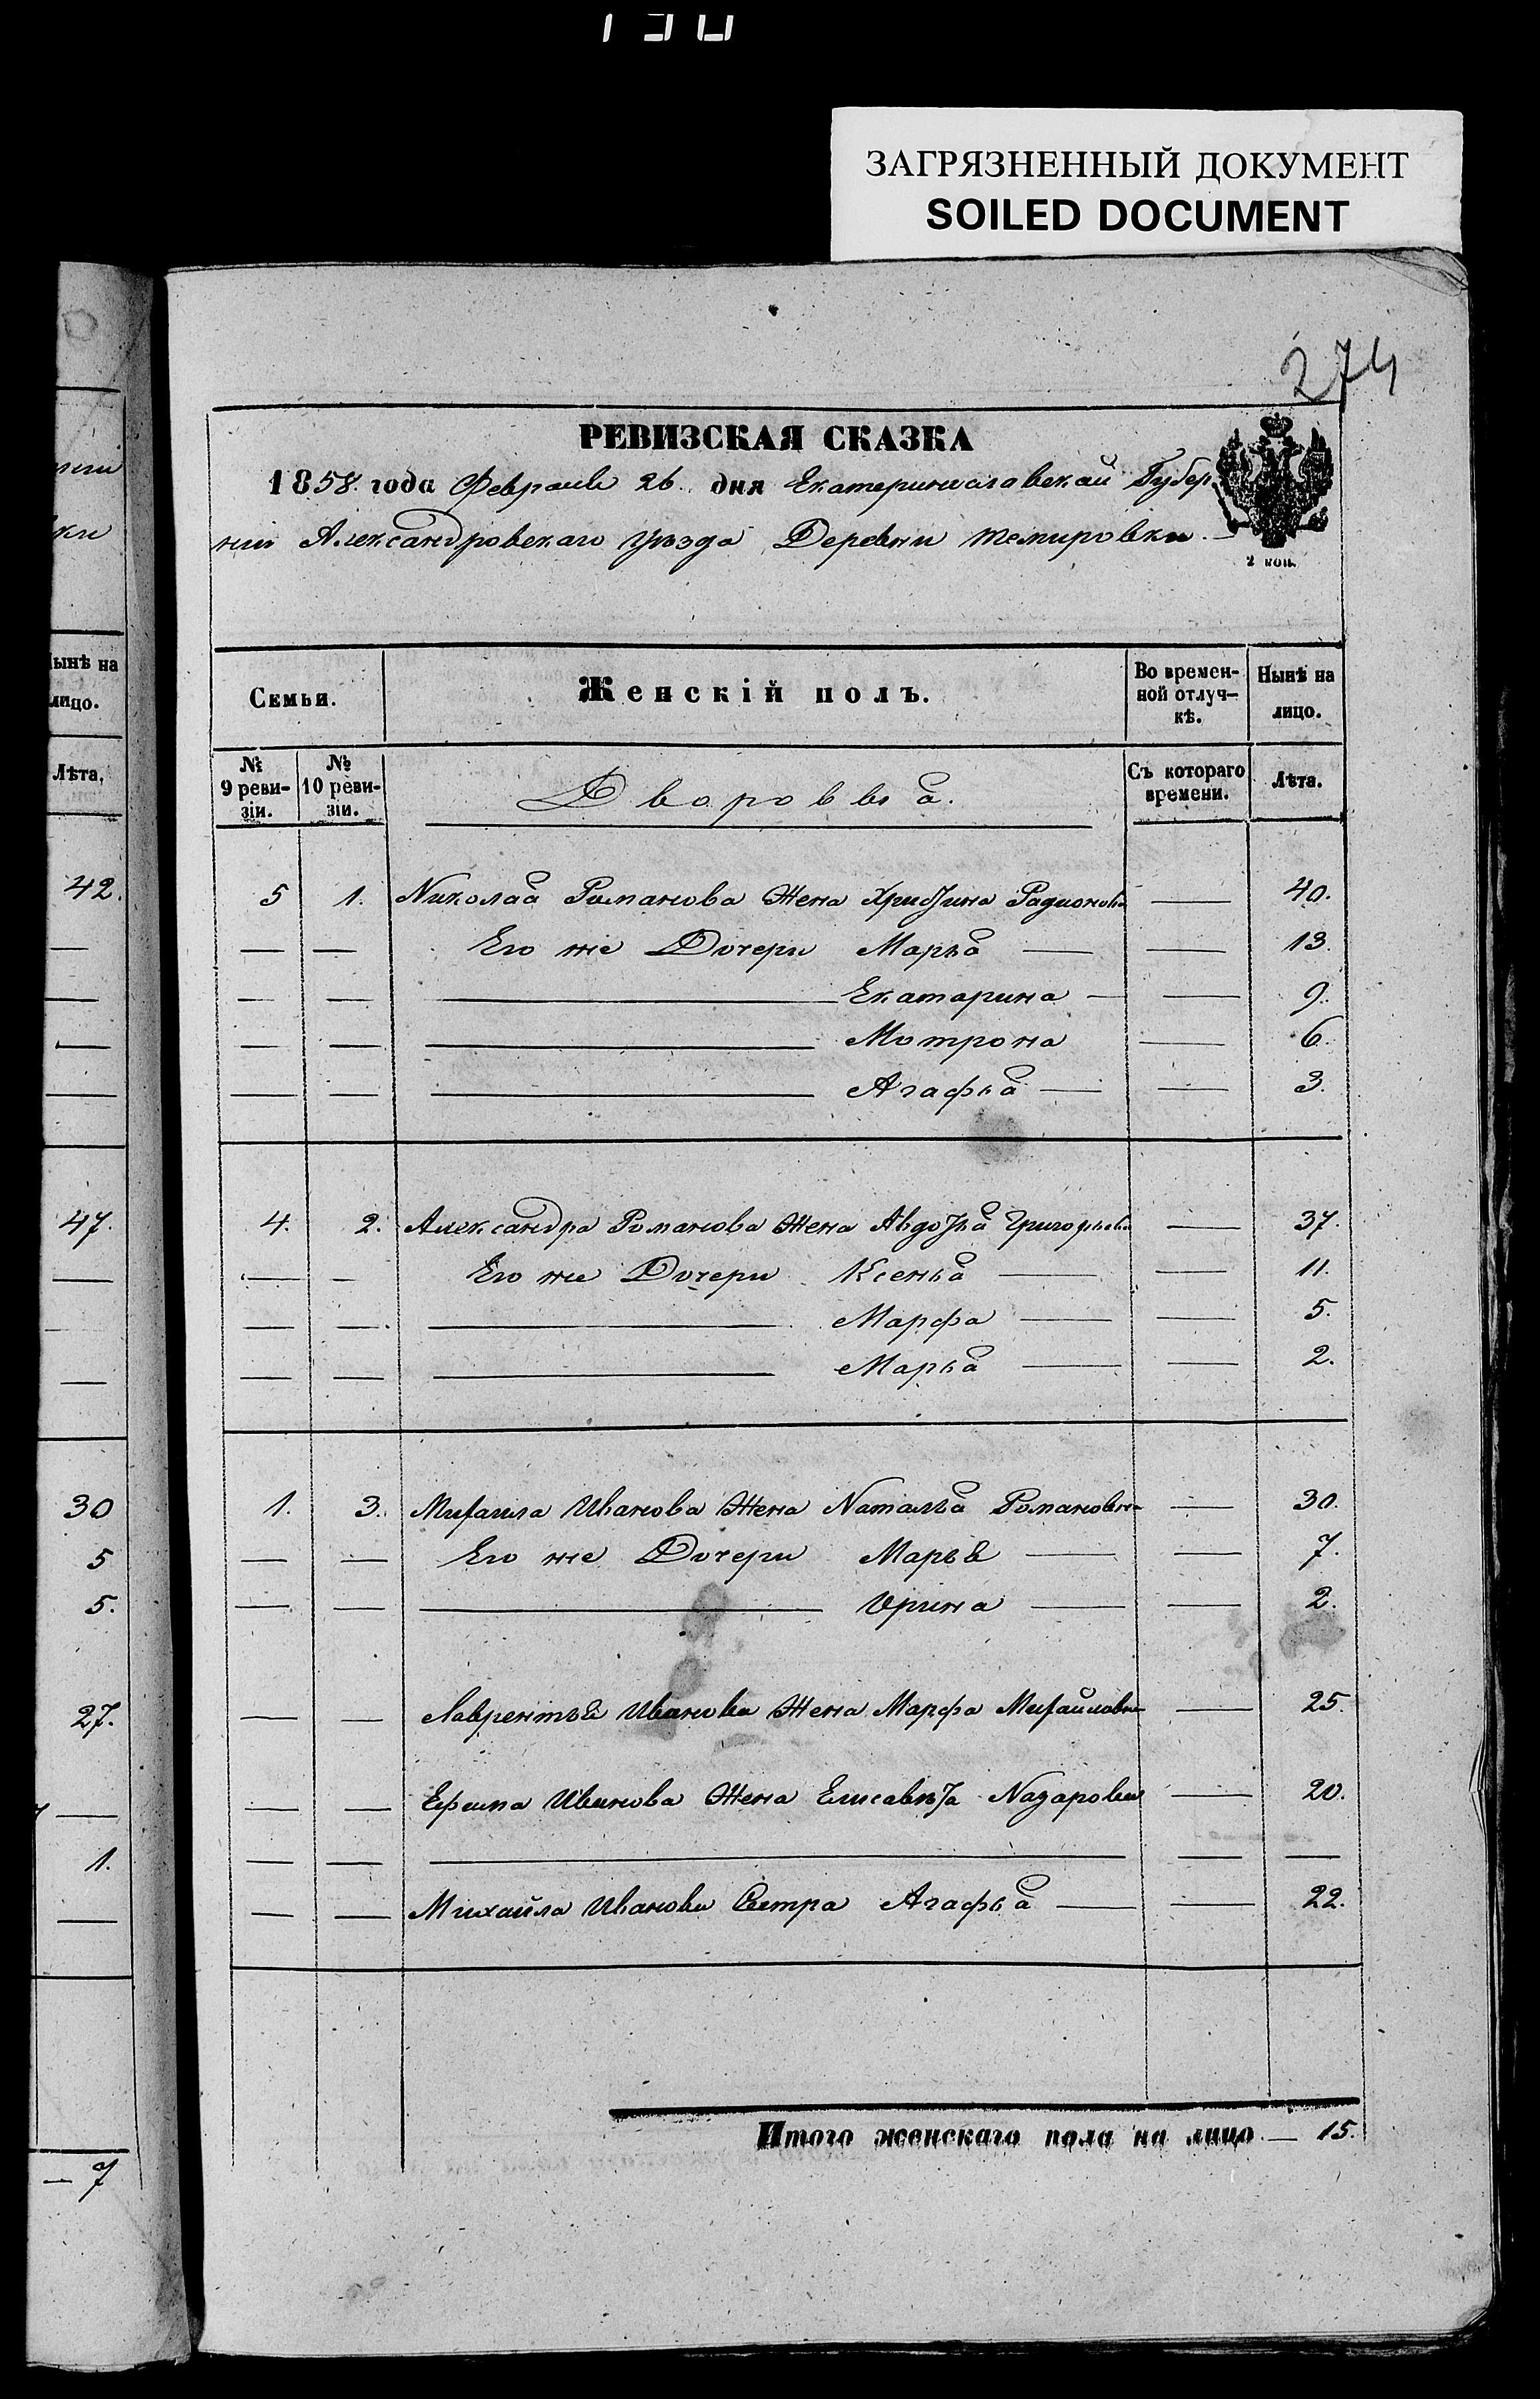 ЗАГРЯЗНЕННЫЙ ДОКУМЕНТ
SOILED DOCUMENT
274
РЕВИЗСКАЯ СКАЗКА
1858. года Февраля 26. дня Екатеринославской Губер
нии Александровскаго уѣзда Деревни Темировки.
2 коп.
Семьи. Женскій полъ. Во времен- Нынѣ на
ной отлуч- лицо.
кѣ.
№ № Съ котораго Лѣта.
9 реви- 10 реви- времени.
зіи. зіи.
Дворовыя.
5 1. Николая Романова Жена Христина Радионова — 40.
— — Его же Дочери Марья — — 13.
— — — Екатарина — — 9.
— — — Мотрона — 6.
— — — Агафья — — 3.
4. 2. Александра Романова Жена Авдотья Григорьева — 37.
— — Его же Дочери Ксенья — — 11.
— — — Марфа — — 5.
— — — Марья — — 2.
1. 3. Михаила Иванова Жена Наталья Романовна — 30.
— — Его же Дочери Марья — — 7.
— — — Ирина — — 2.
— — Лаврентья Иванова Жена Марфа Михайлова — 25.
— — Ефима Иванова Жена Елисавета Назарова — 20.
— — — — —
— — Михайла Иванова Сестра Агафья — — 22.
Итого женскаго пола на лицо — 15.
нии
ки
Нынѣ на
лицо.
Лѣта.
42.
—
—
—
—
47.
—
—
—
30
5
5.
27.
—
1.
—
— 7